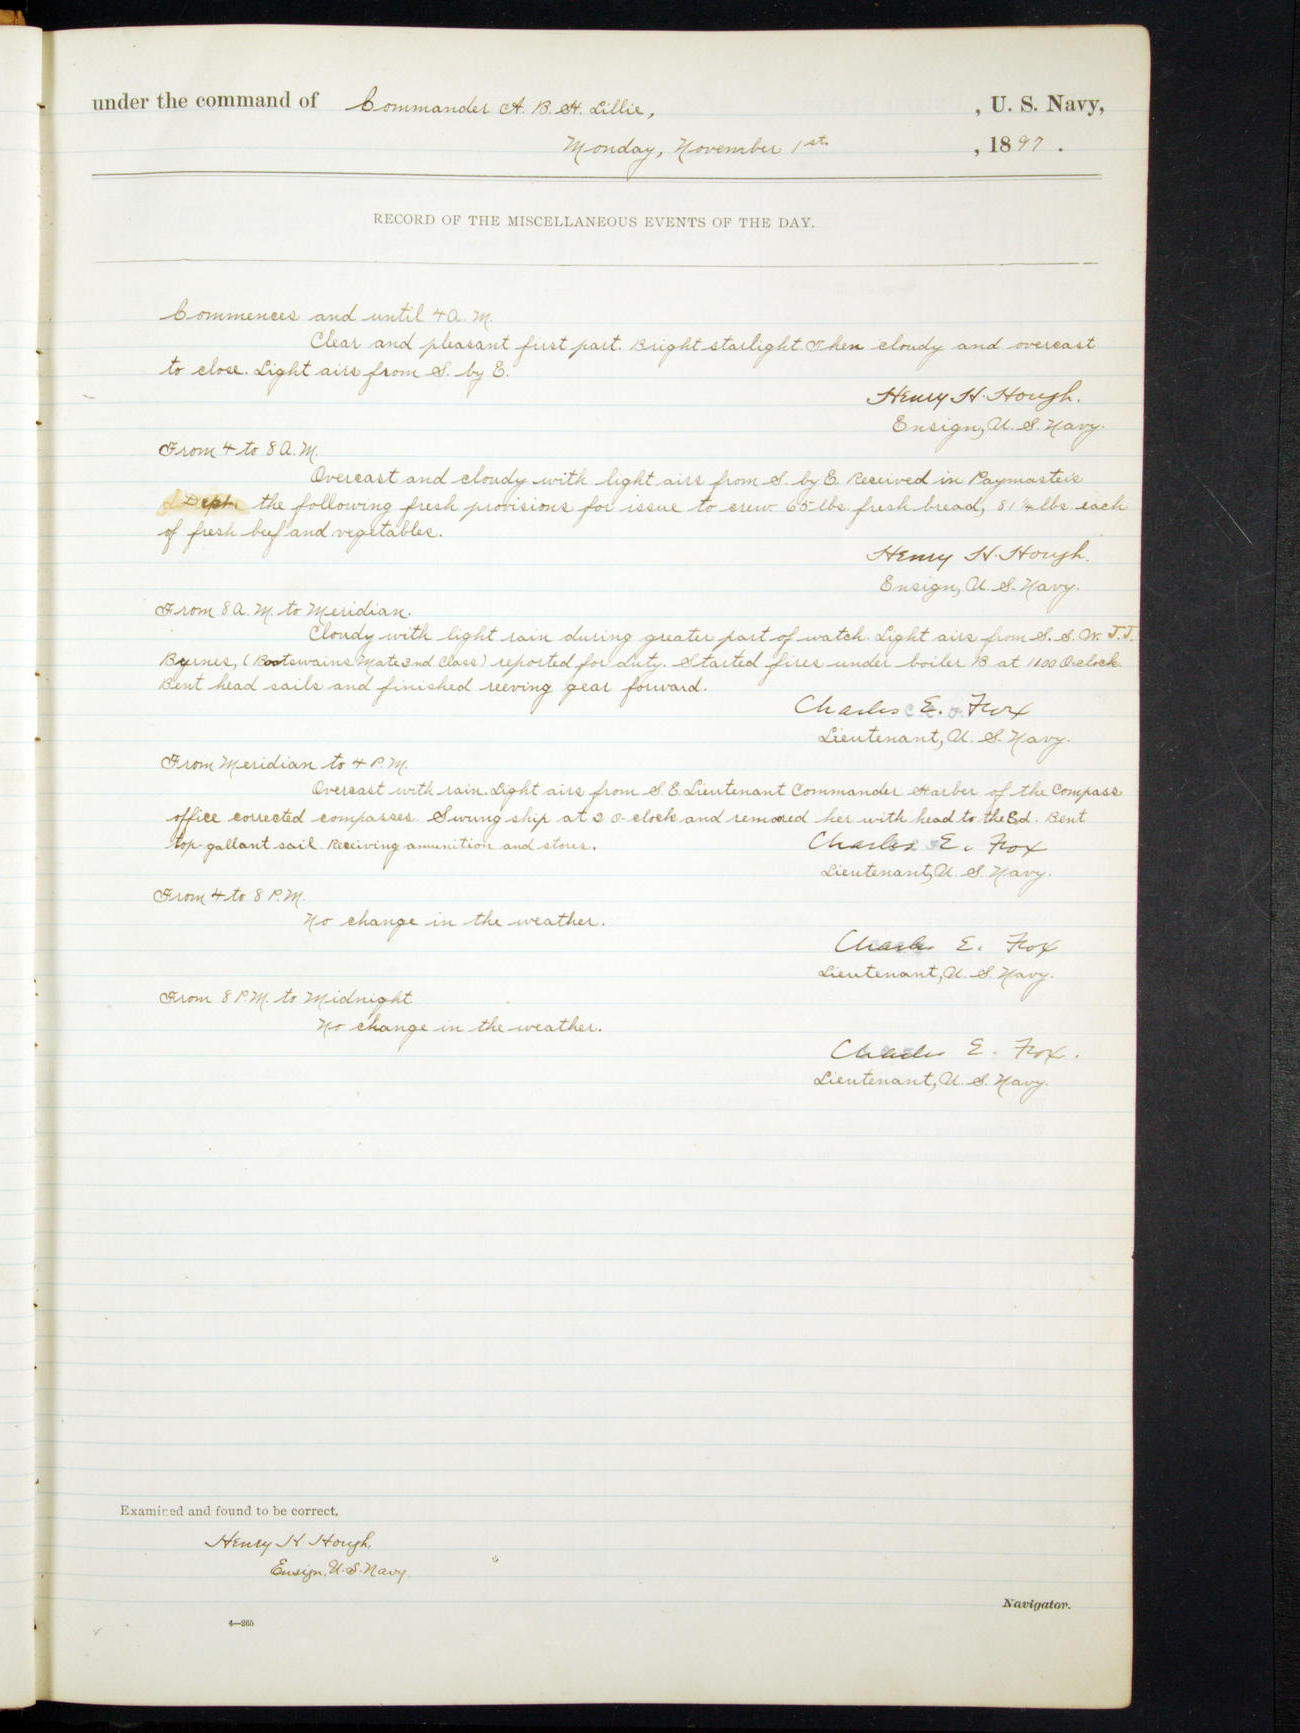 under the command of Commander A. B. H. Lillie, , U. S. Navy,
Monday, November 1st. , 1897 .
RECORD OF THE MISCELLANEOUS EVENTS OF THE DAY.
Commences and until 4 A. M.
Clear and pleasant first part. Bright starlight. Then cloudy and overcast
to close. Light airs from S. by E.
Henry H. Hough.
Ensign, U. S. Navy.
From 4 to 8 A. M.
Overcast and cloudy with light airs from S. by E. Received in Paymaster's
Dept. the following fresh provisions for issue to crew 65 lbs fresh bread, 81 1/4 lbs each
of fresh beef and vegetables.
Henry H. Hough.
Ensign, U. S. Navy.
From 8 A. M. to Meridian.
Cloudy with light rain during greater part of watch. Light airs from S. S. W. J. J.
Byrnes, (Boatswains Mate 2nd Class) reported for duty. Started fires under boiler B at 11 00 O-clock.
Bent head sails and finished reeving gear forward.
Charles E. Fox
Lieutenant, U. S. Navy.
From Meridian to 4 P. M.
Overcast with rain. Light airs from S E. Lieutenant Commander Harber of the Compass
office corrected compasses. Swung ship at 2 O-clock and remoored her with head to the Ed. Bent
top-gallant sail. Receiving amunition and stores.
Charles E. Fox
Lieutenant, U. S. Navy.
From 4 to 8 P. M.
No change in the weather.
Charles E. Fox
Lieutenant, U. S. Navy.
From 8 P. M. to Midnight
No change in the weather.
Charles E. Fox.
Lieutenant, U. S. Navy.
Examined and found to be correct.
Henry H Hough.
Ensign, U. S. Navy.
Navigator.
4—265